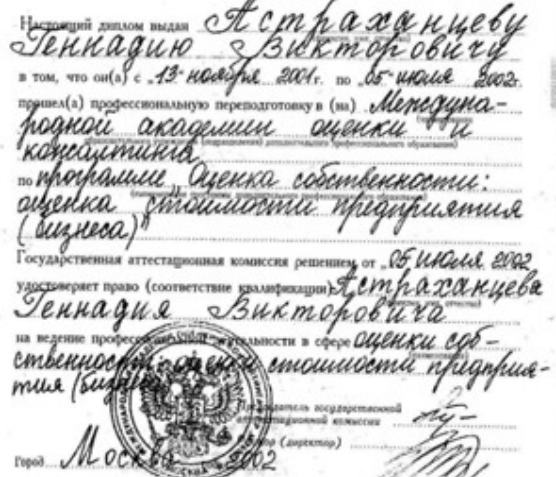 Настоящий диплом выдан Астраханцеву
Геннадию Викторовичу
в том, что он(а) с „13" ноября 2001г. по „05" июля 2002г.
прошел(а) профессиональную переподготовку в (на) Междуна-
родной академии оценки и
консалтинга
по программе „Оценка собственности:
оценка стоимости предприятия
(бизнеса)"
Государственная аттестационная комиссия решением от „05" июля 2002
удостоверяет право (соответствие квалификации) Астраханцева
Геннадия Викторовича
на ведение профессиональной деятельности в сфере оценки соб-
ственности: оценки стоимости предприя-
тия (бизнеса)
Председатель государственной
аттестационной комиссии
Ректор (директор)
Город Москва 2002